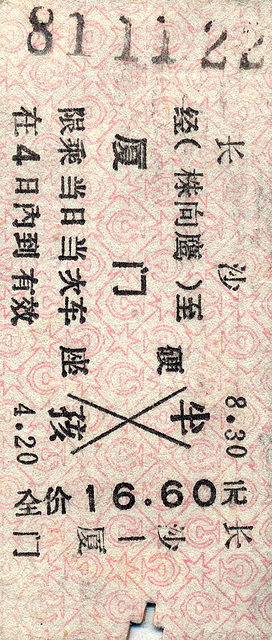 81 11 22
长沙
经(株向鹰)至
厦门
限乘当日当次车
在4日内到有效
硬座
半 8.30
孩 4.20
全价16.60元
长沙—厦门